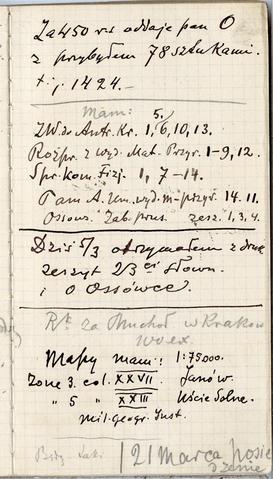 Za 450 rs oddaje pan O
z przybyłem 78 sztukami.
t.j. 1424.–
Mam: 5.
ZW. do Antr. Kr. 1, 6, 10, 13.
Rozpr. z wyd. Mat. Przyr. 1-9, 12.
Spr. kom. Fizj. 1, 7-14.
Pam. A. Um. wyd. m-przyr. 14. 11.
Ossow. Zab. prus. zesz. 1, 3, 4.
Dziś 5/3 otrzymałem z druk.
zeszyt 23ci Słown.
i o Ossówce.
za Muchoł w Krakow
100 ex.
Mapy mam: 1:75000.
Zone 3. col. XXVII. Janów.
" 5 " XXIII Uście Solne.
Mil. geogr. Inst.
21 Marca posie
dzenie